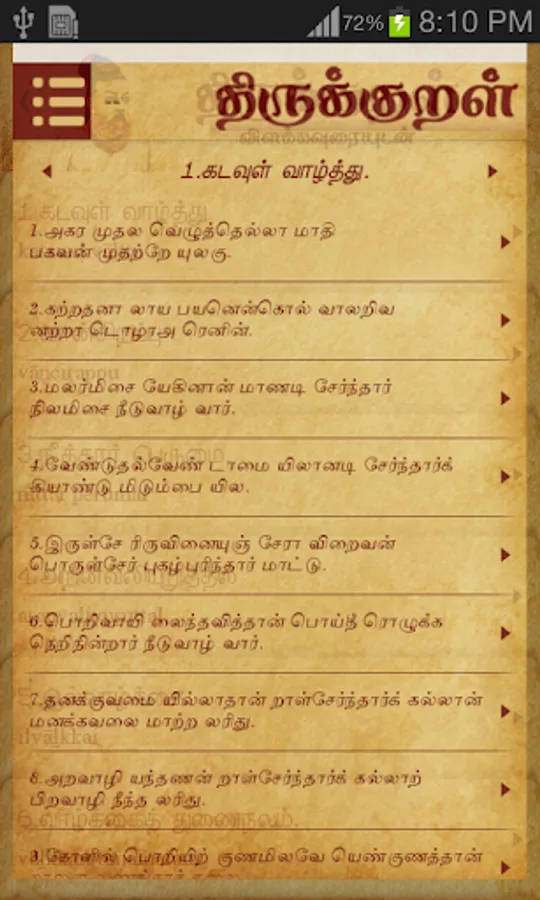 72% 8:10 PM
திருக்குறள்
விளக்கவுரையுடன்
1.கடவுள் வாழ்த்து.
1.கடவுள் வாழ்த்து
1.அகர முதல வெழுத்தெல்லா மாதி
பகவன் முதற்றே யுலகு.
2.கற்றதனா லாய பயனென்கொல் வாலறிவ
னற்றா டொழாஅ ரெனின்.
vancirappu
3.மலர்மிசை யேகினான் மாணடி சேர்ந்தார்
நிலமிசை நீடுவாழ் வார்.
3.நீத்தார் பெருமை
4.வேண்டுதல்வேண் டாமை யிலானடி சேர்ந்தார்க்
கியாண்டு மிடும்பை யில.
nittar perumai
5.இருள்சே ரிருவினையுஞ் சேரா விறைவன்
பொருள்சேர் புகழ்புரிந்தார் மாட்டு.
4.அறன்வலியுறுத்தல்
6.பொறிவாயி லைந்தவித்தான் பொய்தீ ரொழுக்க
நெறிநின்றார் நீடுவாழ் வார்.
7.தனக்குவமை யில்லாதான் றாள்சேர்ந்தார்க் கல்லான்
மனக்கவலை மாற்ற லரிது.
ilvalkkai
8.அறவாழி யந்தணன் றாள்சேர்ந்தார்க் கல்லாற்
பிறவாழி நீந்த லரிது.
6.வாழ்க்கைத் துணைநலம்.
9.கோளில் பொறியிற் குணமிலவே யெண்குணத்தான்